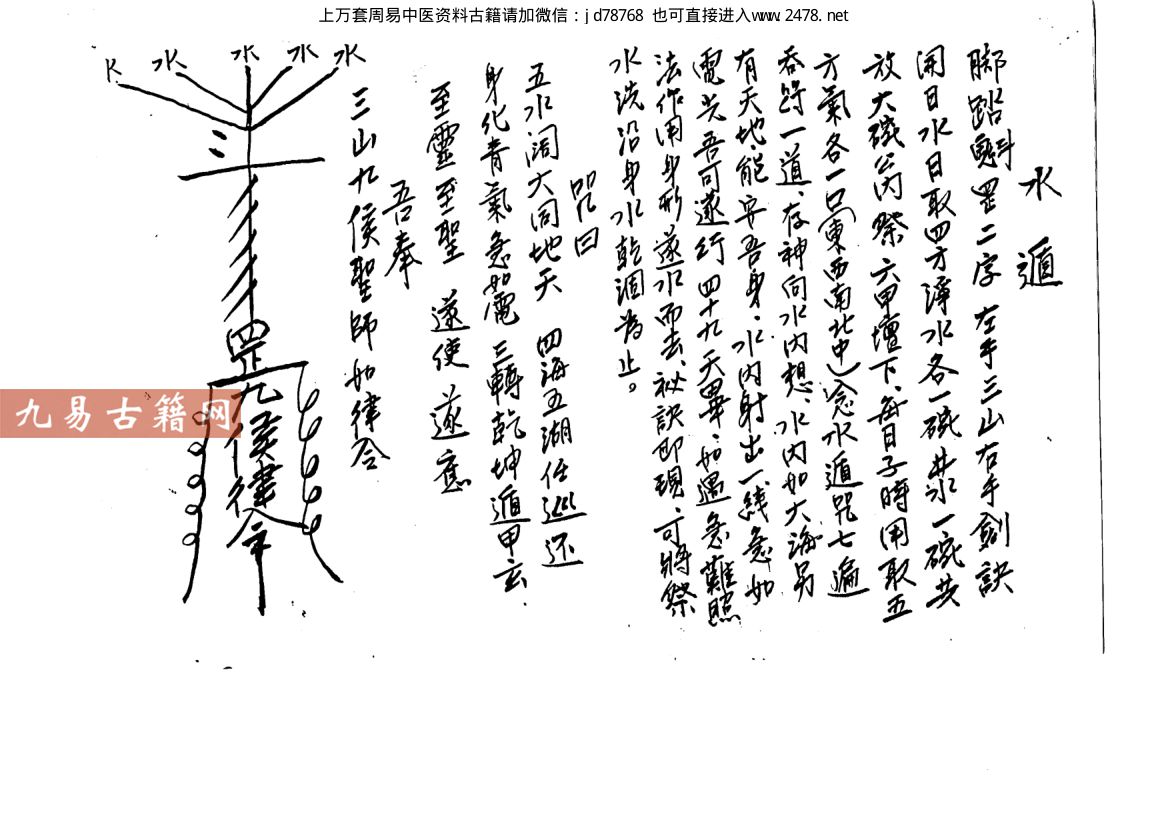 上万套周易中医资料古籍请加微信：jd78768 也可直接进入www.2478.net
水遁
脚踏魁罡二字 左手三山右手劍訣
開日水日取四方淨水各一碗 井水一碗共
放大碗公內祭六甲壇下、每日子時用取五
方氣各一口（東西南北中）念水遁咒七遍
吞符一道、存神向水內想、水內如大海另
有天地、能安吾身、水內射出一綫急如
電光吾可遂行四十九天畢、如遇急難照
法作用身形遂水而去、秘訣即現、可將祭
水洗沿身水乾涸為止。
咒曰
五水濶大同地天 四海五湖任巡还
身化青氣急如電 三轉乾坤遁甲玄
至靈至聖 遂使遂應
吾奉
三山九侯聖師如律令
水 水 水 水
罡
九侯律令
九易古籍网